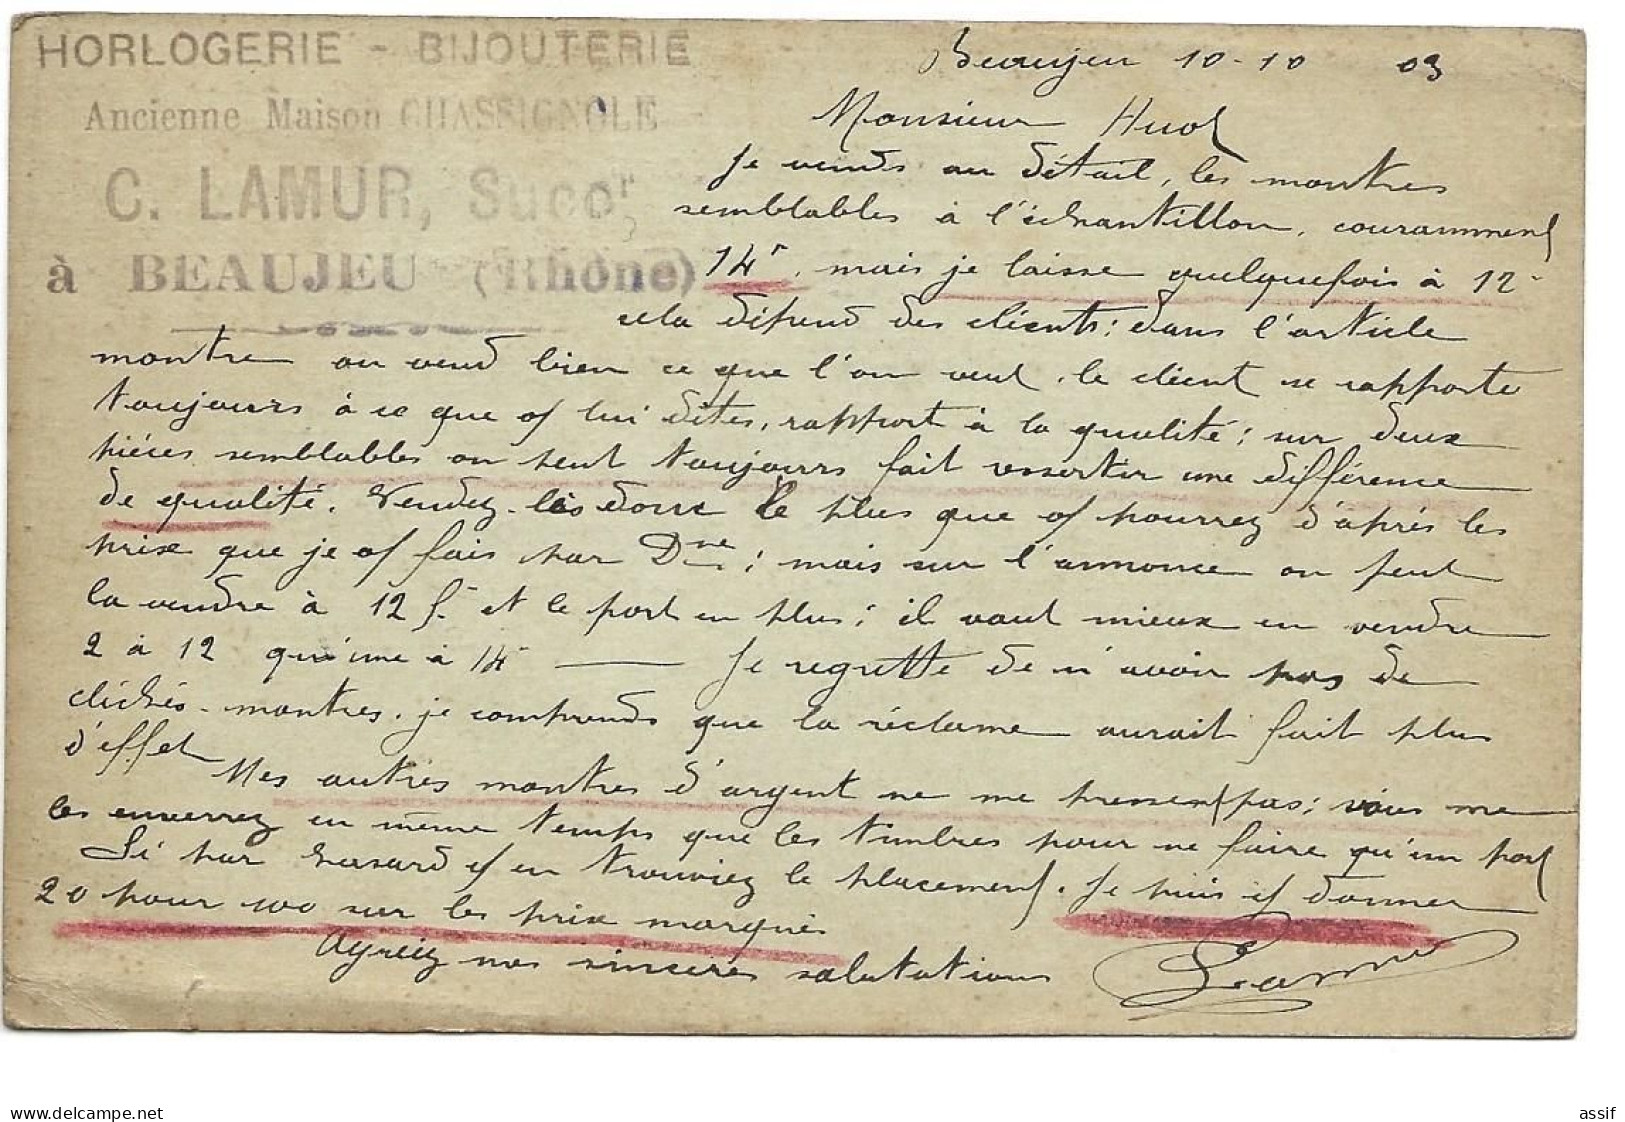 HORLOGERIE - BIJOUTERIE
Ancienne Maison CHASSIGNOLE
C. LAMUR, Succr
à BEAUJEU (Rhône)
Beaujeu 10-10 03
Monsieur Huot
Je vends au détail, les montres
semblables à l'échantillon, couramment
14f, mais je laisse quelquefois à 12-
cela dépend des clients; dans l'article
montre on vend bien ce que l'on veut. le client se rapporte
toujours à ce que lui dites, rapport à la qualité; sur deux
pièces semblables on peut toujours fait ressortir une différence
de qualité. Vendez-les donc le plus que pourrez d'après les
prix que je fais par Dne; mais sur l'annonce on peut
la vendre à 12 f. et le port en plus; il vaut mieux en vendre
2 à 12 qu'une à 14 — Je regrette de n'avoir pas de
clichés-montres. je comprends que la réclame aurait fait plus
d'effet
Mes autres montres d'argent ne me pressent pas; vous me
les enverrez en même temps que les timbres pour ne faire qu'un port
Si par hasard en trouviez le placement. Je puis donner
20 pour 100 sur les prix marqués
Agréez mes sincères salutations
Lamur
delcampe.net
assif